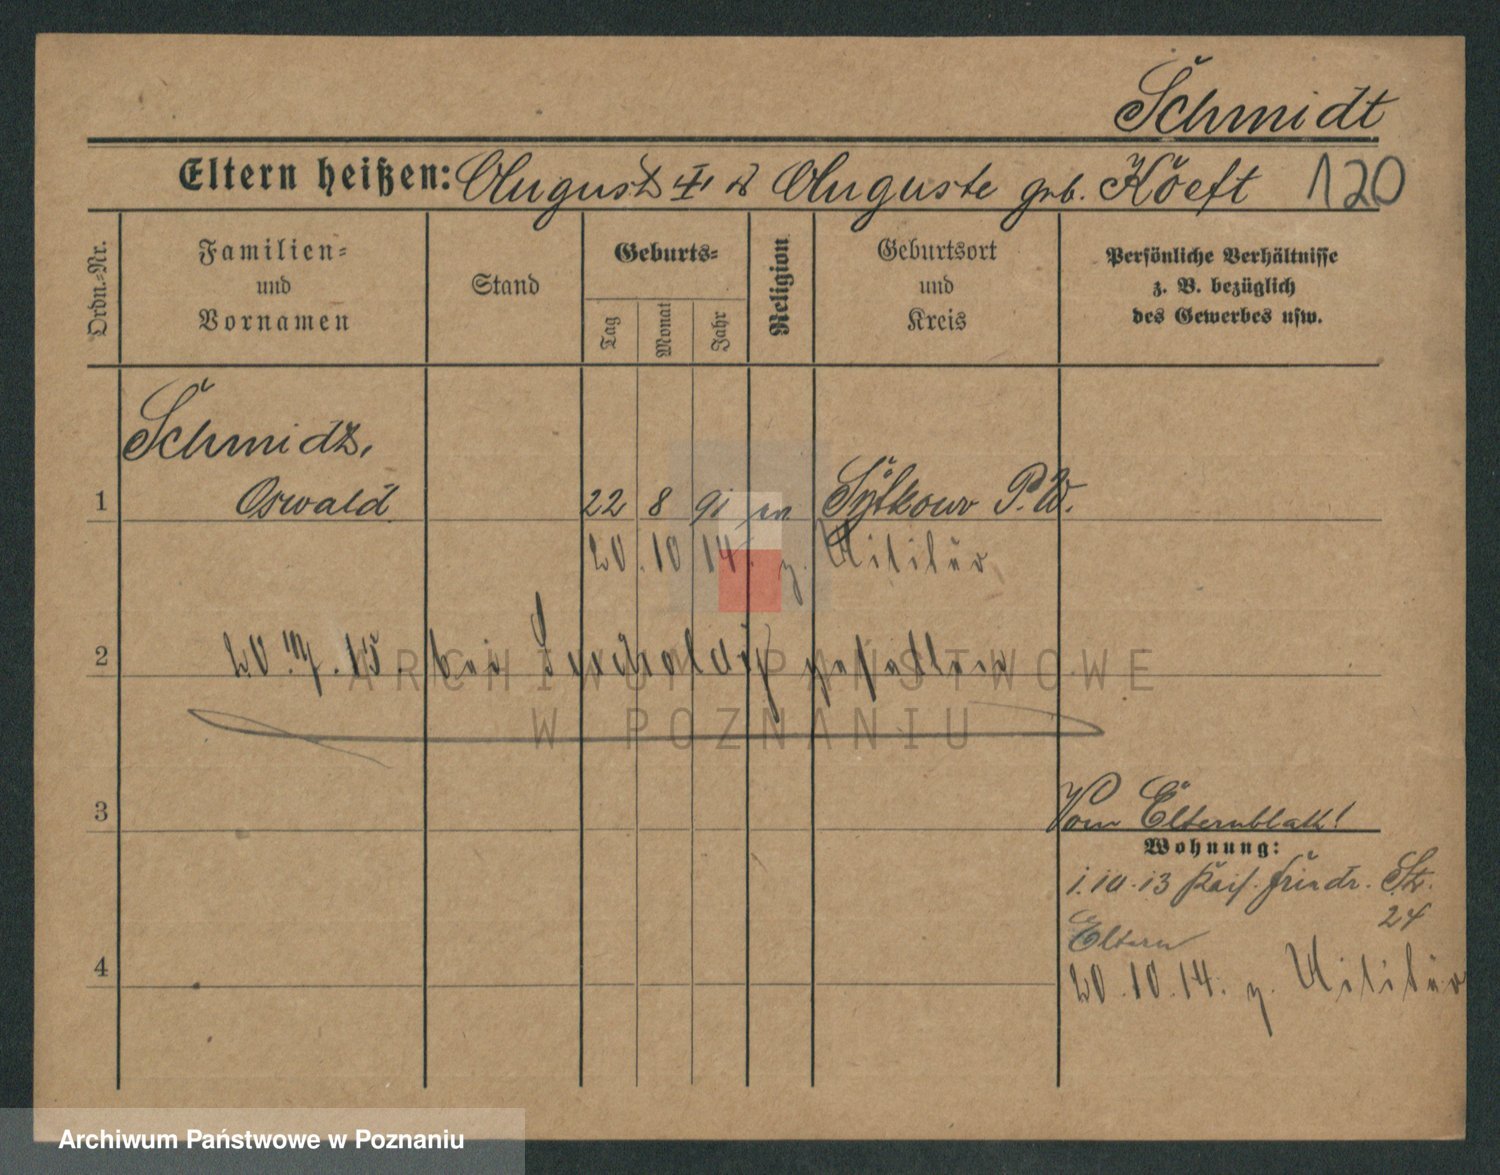 Schmidt
Eltern heißen: August II & Auguste geb. Koeft 120
Ordn.-Nr.
Familien-
und
Vornamen
Stand
Geburts-
Tag
Monat
Jahr
Religion
Geburtsort
und
Kreis
Persönliche Verhältnisse
z. B. bezüglich
des Gewerbes usw.
Schmidt,
1 Oswald 22 8 91 ev Sytkowo P.W.
20.10 14. z. Militär
2 20. 7. 15. bei gefallen
3
Vom Elternblatt!
Wohnung:
1.10.13 Kais. Friedr. Str.
24
Eltern
4
20.10.14. z. Militär
ARCHIWUM PAŃSTWOWE
W POZNANIU
Archiwum Państwowe w Poznaniu